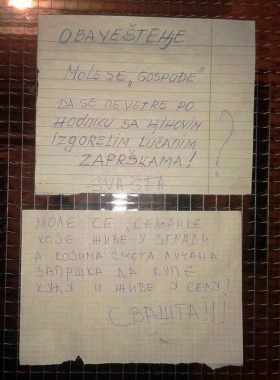 OBAVEŠTEЊE
MOLE SE „GOSPOĐE"
DA SE NE VETRE PO
HODNIKU SA ЊIHOVIM
IZGORELIM LUČANIM
ZAPRŠKAMA!
?
SVAŠTA
МОЛЕ СЕ СЕЉАНКЕ
КОЈЕ ЖИВЕ У ЗГРАДИ
А КОЈИМА СМЕТА ЛУЧАНА
ЗАПРШКА ДА КУПЕ
КУЋУ И ЖИВЕ У СЕЛУ!
СВАШТА!!!